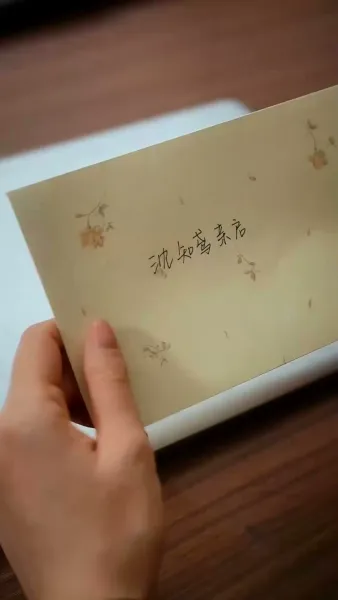 沈知鸢亲启